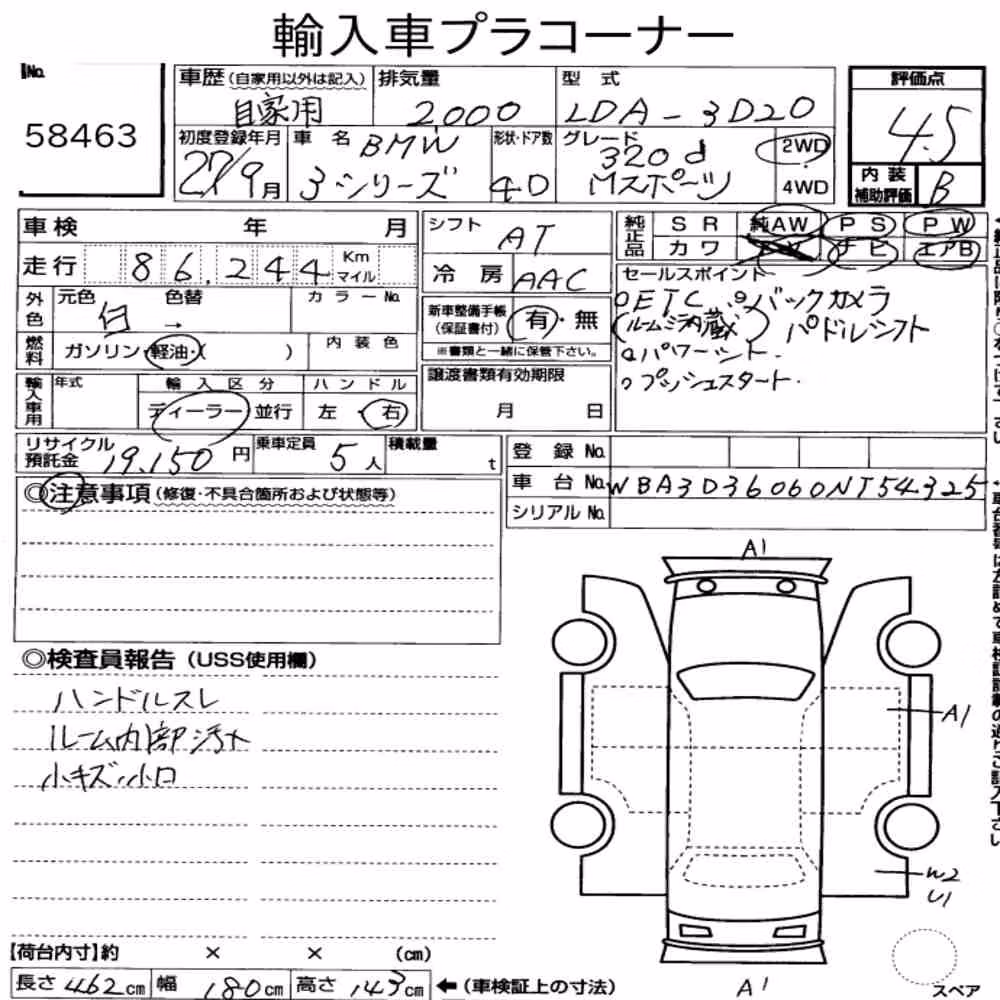 輸入車プラコーナー
No.
58463
車歴(自家用以外は記入) 排気量 型式
自家用 2000 LDA-3D20
評価点
4.5
初度登録年月 車名 形状・ドア数 グレード
27/9月 BMW 3シリーズ 4D 320d Mスポーツ
2WD
4WD
内装補助評価 B
車検 年 月
走行 86,244 Km マイル
外色 元色 色替 カラーNo.
白 →
燃料 ガソリン・軽油・( ) 内装色
輸入車用 年式 輸入区分 ハンドル
ディーラー 並行 左・右
シフト AT
冷房 AAC
新車整備手帳(保証書付) 有・無
※書類と一緒に保管下さい。
譲渡書類有効期限
月 日
純正品 SR 純AW PS PW
カワ ナビ エアB
セールスポイント
○ETC ○バックカメラ
(ルームミラー内蔵) パドルシフト
○パワーシート
○プッシュスタート
リサイクル預託金 19,150円 乗車定員 5人 積載量 t
登録No.
車台No. WBA3D36060NT54325
シリアルNo.
◎注意事項(修復・不具合箇所および状態等)
◎検査員報告(USS使用欄)
ハンドルスレ
ルーム内部汚れ
小キズ・小凹
A1
A1
W2
U1
A1
スペア
【荷台内寸】約 × × (cm)
長さ 462cm 幅 180cm 高さ 143cm ←(車検証上の寸法)